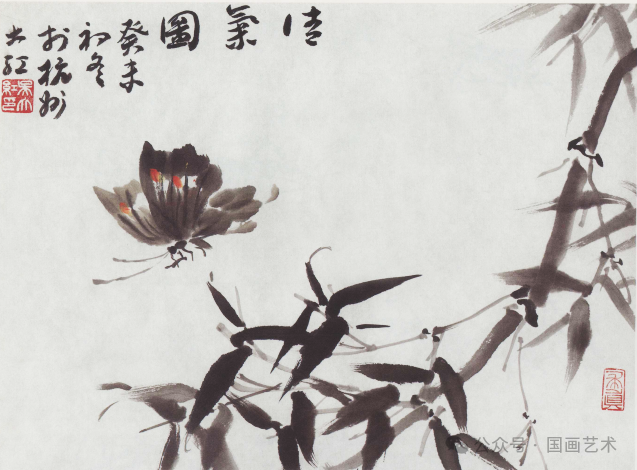 清氣圖
癸未
初冬
於杭州
大红
求真
公众号 · 国画艺术